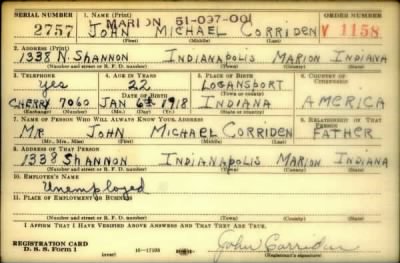 SERIAL NUMBER 1. NAME (Print) ORDER NUMBER
MARION 51-097-001
2757 JOHN MICHAEL CORRIDEN V 1158
(First) (Middle) (Last)
2. ADDRESS (Print)
1338 N. SHANNON INDIANAPOLIS MARION INDIANA
(Number and street or R. F. D. number) (Town) (County) (State)
3. TELEPHONE 4. AGE IN YEARS 5. PLACE OF BIRTH 6. COUNTRY OF CITIZENSHIP
yes 22 LOGANSPORT
DATE OF BIRTH (Town or county)
CHERRY 7060 JAN 6th 1918 INDIANA AMERICA
(Exchange) (Number) (Mo.) (Day) (Yr.) (State or country)
7. NAME OF PERSON WHO WILL ALWAYS KNOW YOUR ADDRESS 8. RELATIONSHIP OF THAT PERSON
MR JOHN MICHAEL CORRIDEN FATHER
(Mr., Mrs., Miss) (First) (Middle) (Last)
9. ADDRESS OF THAT PERSON
1338 SHANNON INDIANAPOLIS MARION INDIANA
(Number and street or R. F. D. number) (Town) (County) (State)
10. EMPLOYER'S NAME
Unemployed
11. PLACE OF EMPLOYMENT OR BUSINESS
(Number and street or R. F. D. number) (Town) (County) (State)
I AFFIRM THAT I HAVE VERIFIED ABOVE ANSWERS AND THAT THEY ARE TRUE.
REGISTRATION CARD John Corriden
D. S. S. Form 1 (over) 16-17105 (Registrant's signature)